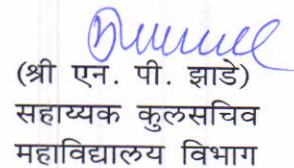 (श्री एन. पी. झाडे)
सहाय्यक कुलसचिव
महाविद्यालय विभाग